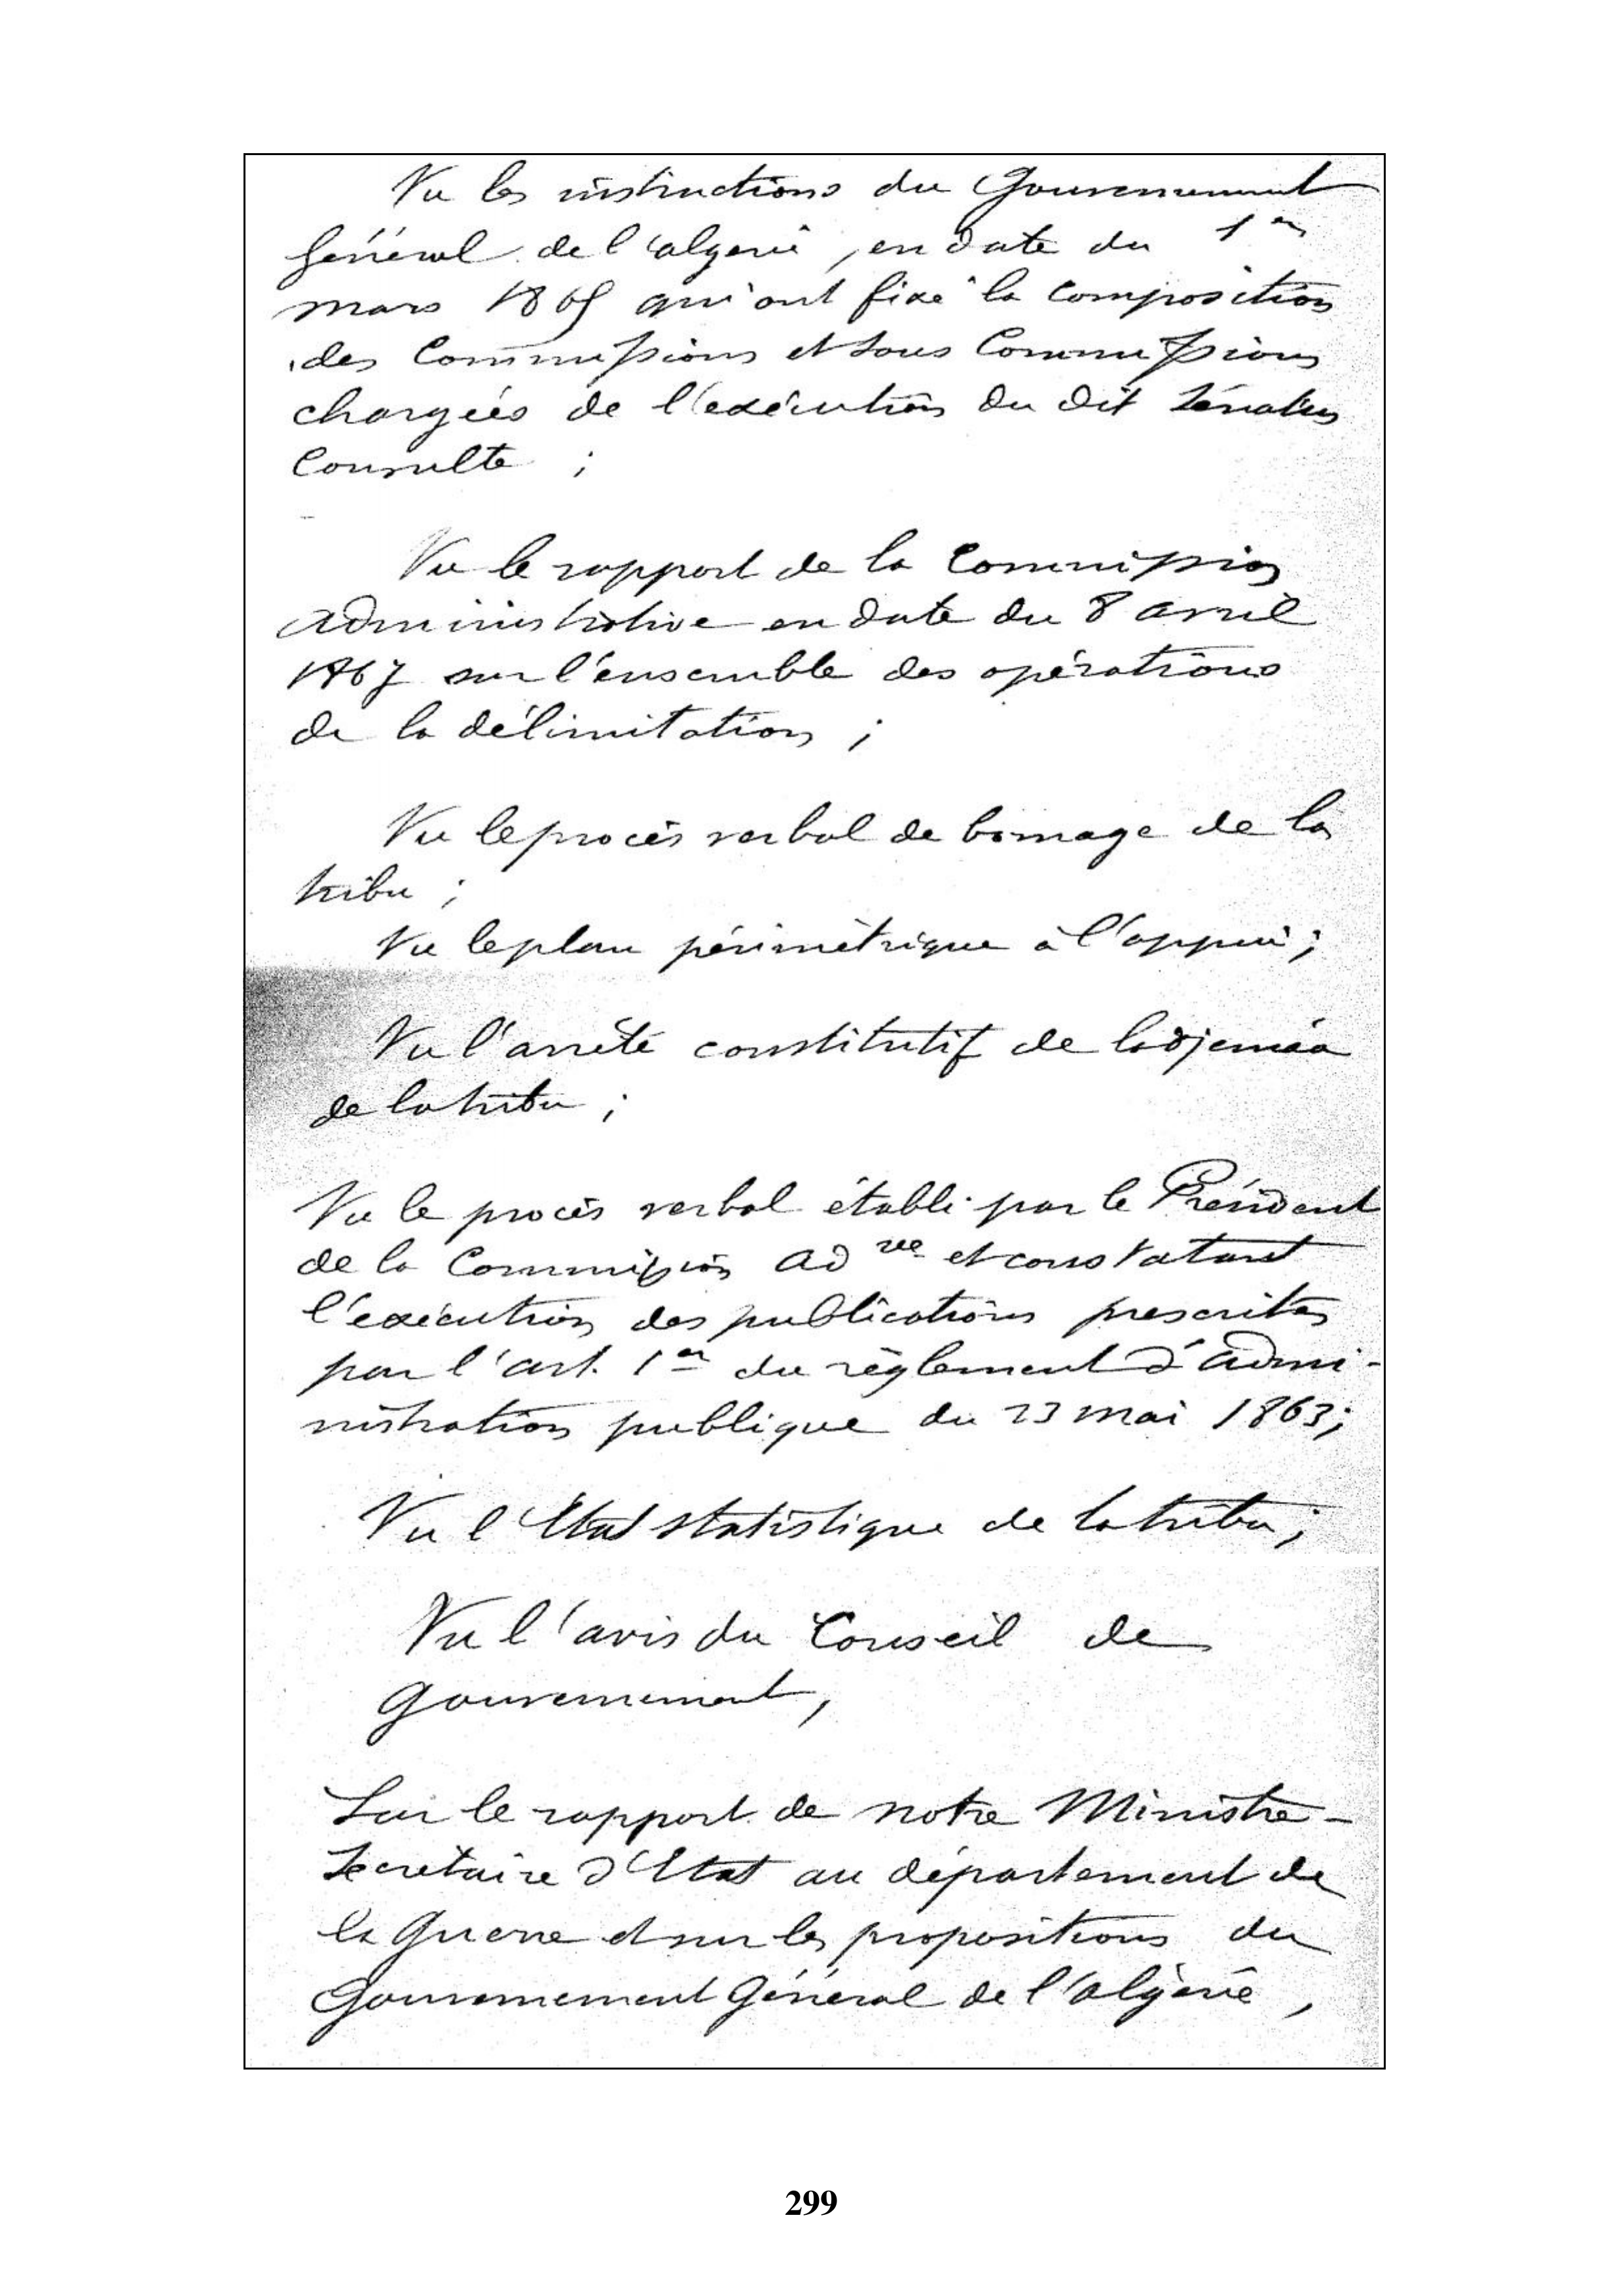 Vu les instructions du Gouvernement
général de l'algerie, en date du 1er
mars 1865 qui ont fixé la composition
des Commissions et sous Commissions
chargées de l'exécution du dit Sénatus
Consulte ;
Vu le rapport de la Commission
administrative en date du 8 avril
1867 sur l'ensemble des opérations
de la délimitation ;
Vu le procès verbal de bornage de la
tribu ;
Vu le plan périmètrique à l'appui ;
Vu l'arrêté constitutif de la djemâa
de la tribu ;
Vu le procès verbal établi par le Président
de la Commission adve et constatant
l'exécution des publications prescrites
par l'art. 1er du règlement d'admi-
nistration publique du 23 mai 1863 ;
Vu l'Etat statistique de la tribu ;
Vu l'avis du Conseil de
gouvernement,
Sur le rapport de notre Ministre-
Secrétaire d'Etat au département de
la Guerre et sur les propositions du
Gouvernement Général de l'algérie,
299